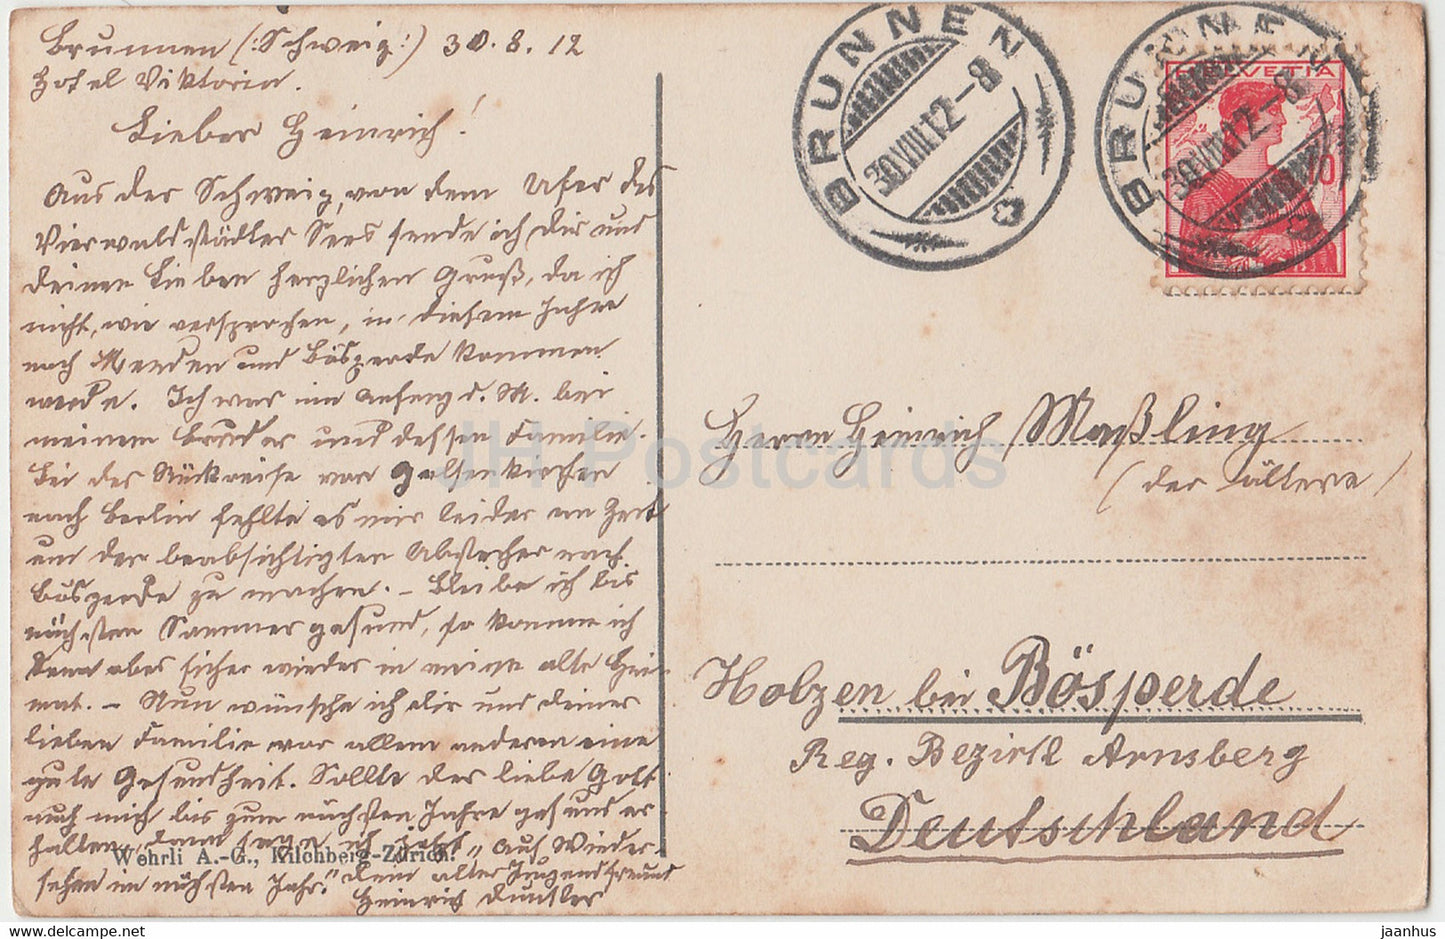 Brunnen (:Schweiz:) 30.8.12
Hotel Viktoria.
Lieber Heinrich!
Aus der Schweiz, von dem Ufer des
Vierwaldstädter Sees sende ich Dir und
Deinen Lieben herzlichen Gruß, da ich
nicht, wie versprochen, in diesem Jahre
nach Menden und Bösperde kommen
werde. Ich war im Anfang d. M. bei
meinem Bruder und dessen Familie.
Bei der Rückreise von Gelsenkirchen
nach Berlin fehlte es mir leider an Zeit
um den beabsichtigten Abstecher nach
Bösperde zu machen. – Bleibe ich bis
nächsten Sommer gesund, so komme ich
dann aber sicher wieder in meine alte Hei-
mat. – Nun wünsche ich Dir und Deiner
lieben Familie vor allem anderen eine
gute Gesundheit. Sollte der liebe Gott
auch mich bis zum nächsten Jahre gesund er
halten, dann sagen ich jetzt „Auf Wieder-
sehen im nächsten Jahr." Dein alter Jugendfreund
Heinrich
Wehrli A.-G., Kilchberg-Zürich.
BRUNNEN
30.VIII.12-8
BRUNNEN
30.VIII.12-8
HELVETIA
10
Herrn Heinrich Maßling
(der ältere)
Holzen bei Bösperde
Reg. Bezirk Arnsberg
Deutschland
JH Postcards
jaanhus
delcampe.net